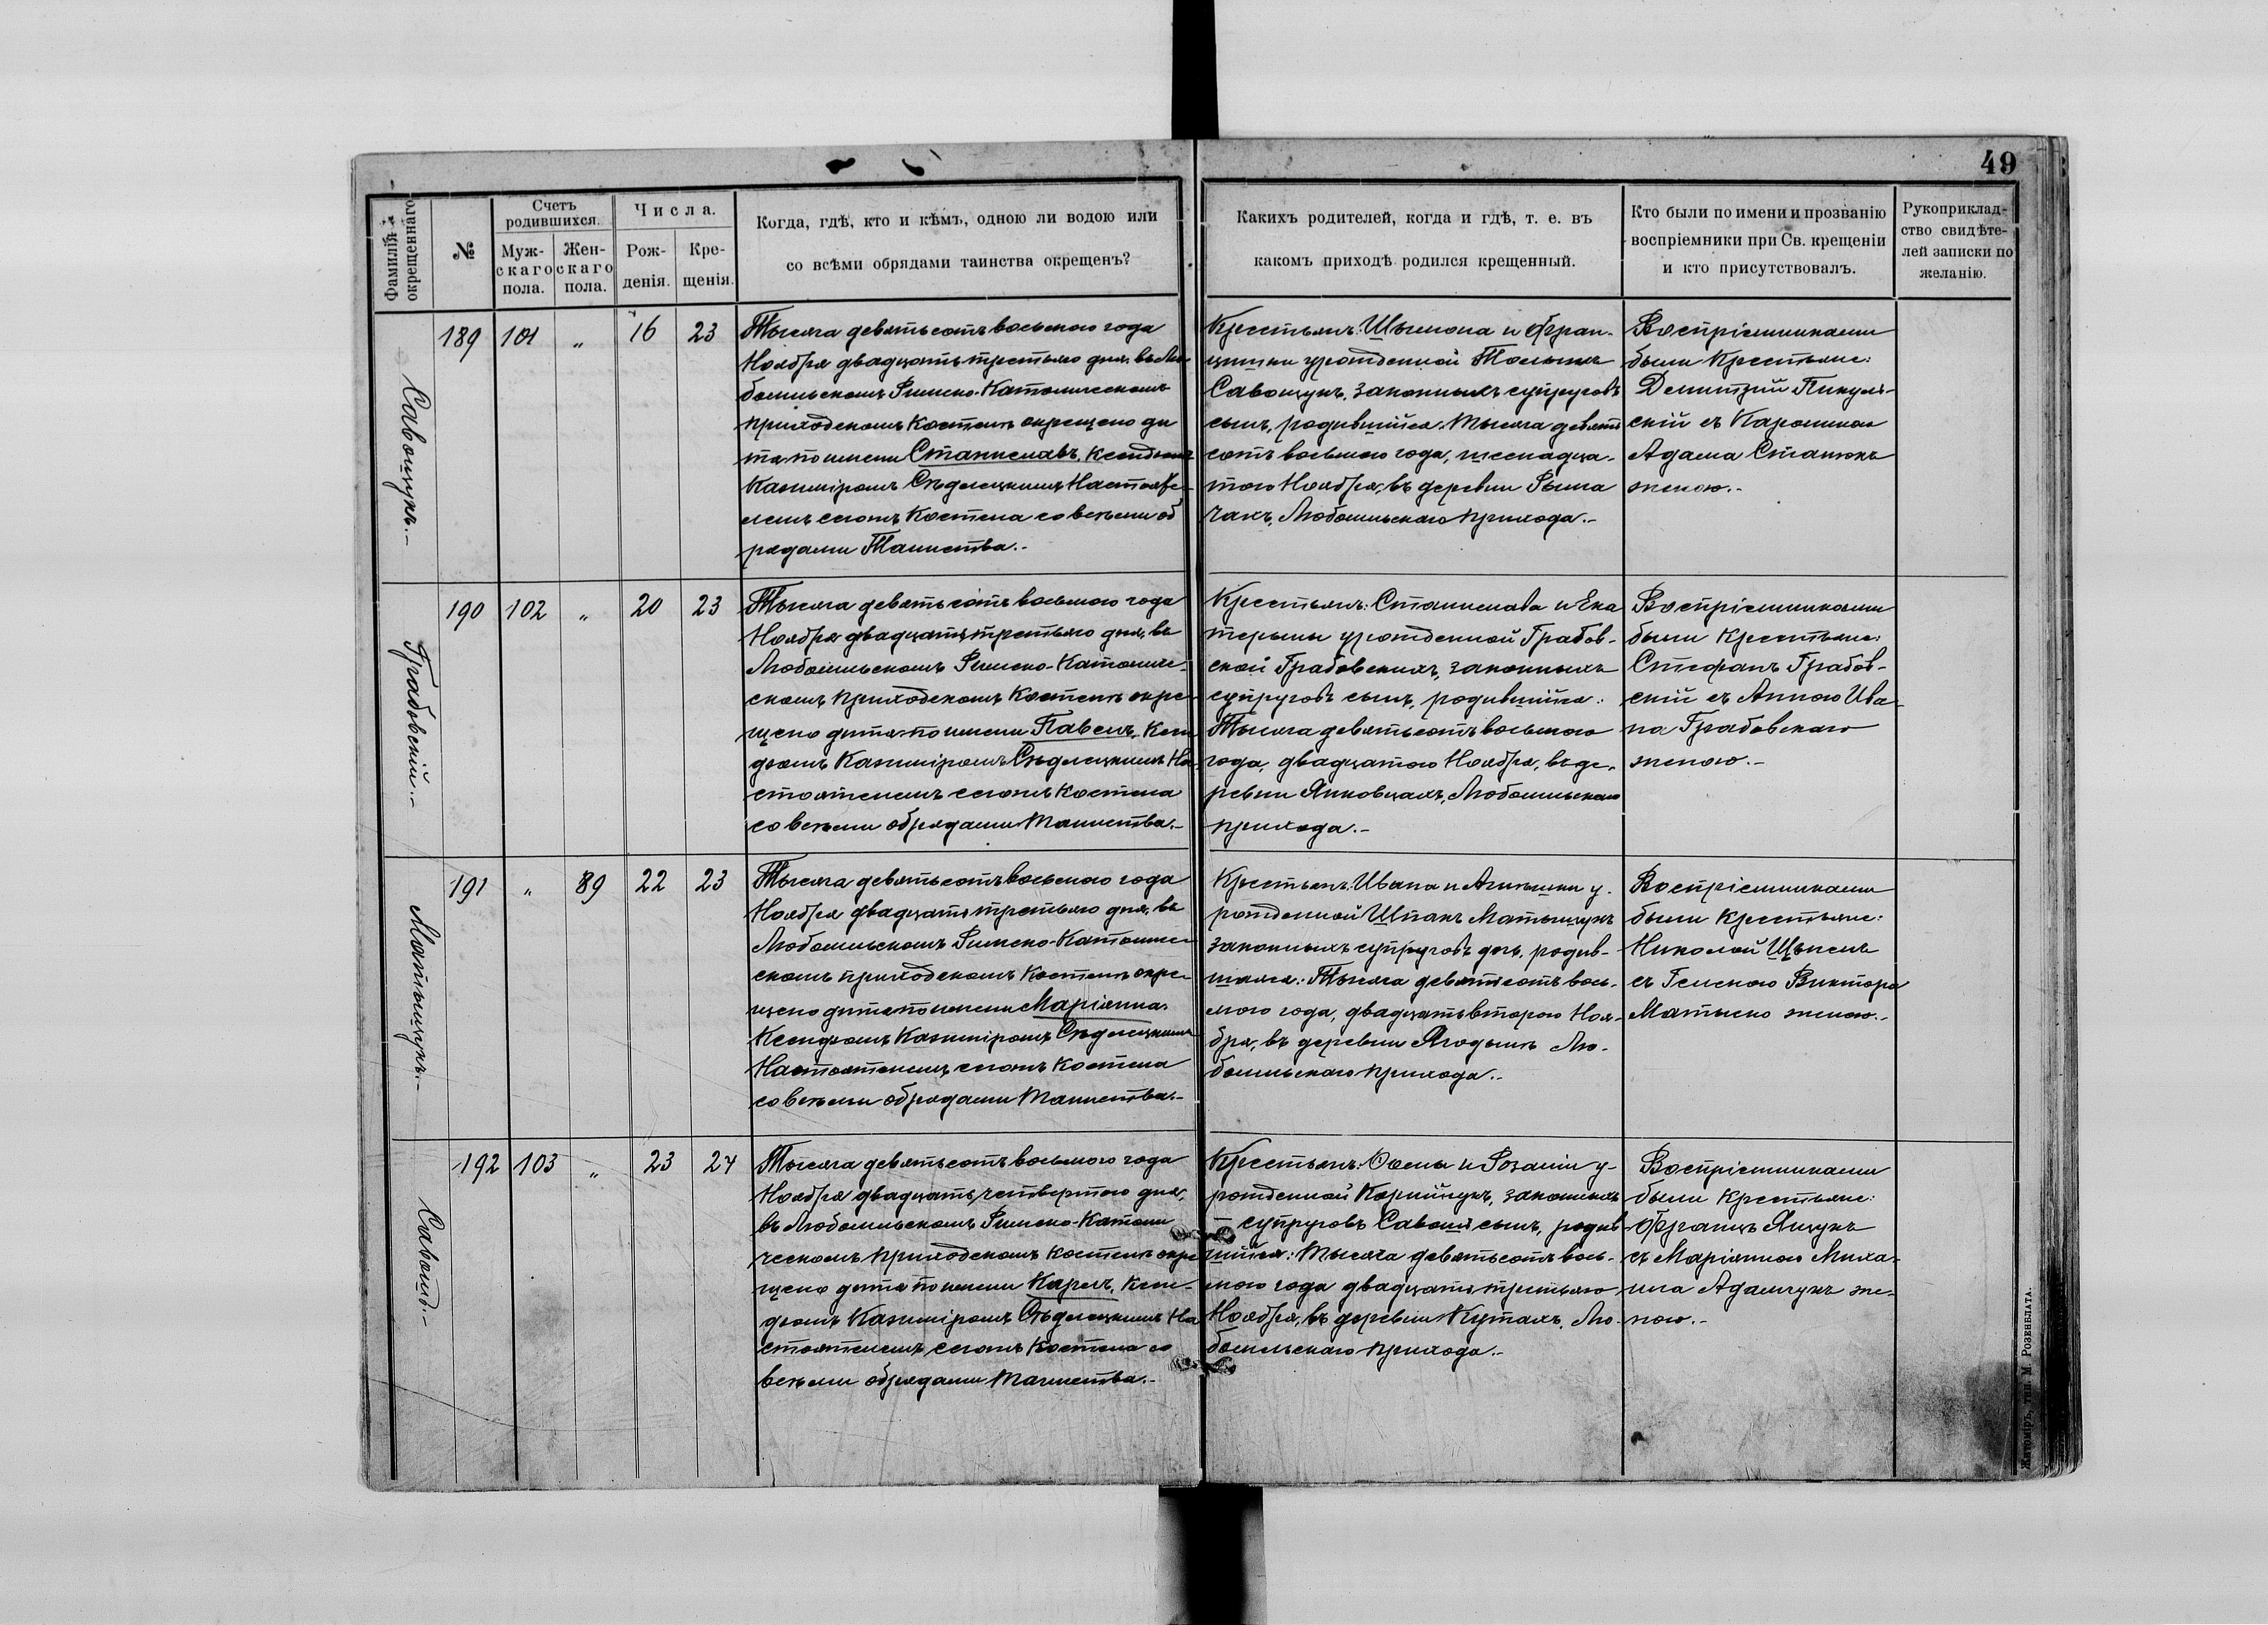 49
Фамилія окрещеннаго
№
Счетъ родившихся.
Мужскаго пола.
Женскаго пола.
Числа.
Рожденія.
Крещенія.
Когда, гдѣ, кто и кѣмъ, одною ли водою или
со всѣми обрядами таинства окрещенъ?
Какихъ родителей, когда и гдѣ, т. е. въ
какомъ приходѣ родился крещенный.
Кто были по имени и прозванію
воспріемники при Св. крещеніи
и кто присутствовалъ.
Рукоприклад-
ство свидѣте-
лей записки по
желанію.
Савощукъ.-
189 101 „ 16 23
Тысяча девятьсотъ восьмого года
Ноября двадцать третьяго дня, въ Лю
бомльскомъ Римско-Католическомъ
приходскомъ Костелѣ окрещено ди
тя по имени Станиславъ, Ксендзомъ
Казимiромъ Сѣдлецкимъ Настояте-
лемъ сегожъ Костела со всѣми об
рядами Таинства.-
Крестьянъ: Шымона и Фран-
цишки урожденной
Савощукъ, законныхъ супруговъ
сынъ, родившійся: Тысяча девять
сотъ восьмого года, шеснадца-
того Ноября, въ деревни Рыма
чахъ, Любомльскаго прихода.-
Воспріемниками
были Крестьяне:
Димитрій Пикуль-
скій съ Каролиною
Адама Станюкъ
женою.-
Грабовскій.-
190 102 „ 20 23
Тысяча девятьсотъ восьмого года
Ноября двадцать третьяго дня, въ
Любомльскомъ Римско-Католиче-
скомъ приходскомъ Костелѣ окре-
щено дитя по имени Павелъ, Ксен
дзомъ Казимiромъ Сѣдлецкимъ На-
стоятелемъ сегожъ Костела
со всѣми обрядами Таинства.-
Крестьянъ: Станислава и Ека
терыны урожденной Грабов-
ской Грабовскихъ, законныхъ
супруговъ сынъ, родившійся:
Тысяча девятьсотъ восьмого
года, двадцатого Ноября, въ де-
ревни Янковцахъ, Любомльскаго
прихода.-
Воспріемниками
были Крестьяне:
Стефанъ Грабов-
скій съ Анною Ива-
на Грабовскаго
женою.-
Матыщукъ.-
191 „ 89 22 23
Тысяча девятьсотъ восьмого года
Ноября двадцать третьяго дня, въ
Любомльскомъ Римско-Католиче
скомъ приходскомъ Костелѣ окре-
щено дитя по имени Маріянна,
Ксендзомъ Казимiромъ Сѣдлецкимъ
Настоятелемъ сегожъ Костела
со всѣми обрядами Таинства.-
Крестьянъ: Ивана и Агнешки у-
рожденной Шпакъ Матыщукъ
законныхъ супруговъ дочь, родив-
шаяся: Тысяча девятьсотъ вось-
мого года, двадцать второго Ноя-
бря, въ деревни Ягодынѣ Лю-
бомльскаго прихода.-
Воспріемниками
были Крестьяне:
Николай
съ Геленою Виктора
Матыско женою.-
Савошъ.-
192 103 „ 23 24
Тысяча девятьсотъ восьмого года
Ноября двадцать четвертого дня,
въ Любомльскомъ Римско-Католи
ческомъ приходскомъ Костелѣ окре
щено дитя по имени Каролъ, Ксен-
дзомъ Казимiромъ Сѣдлецкимъ На
стоятелемъ сегожъ Костела со
всѣми обрядами Таинства.-
Крестьянъ: Фомы и Розаліи у-
рожденной Корнійчукъ, законныхъ
супруговъ Савошъ сынъ, родив-
шійся: Тысяча девятьсотъ вось-
мого года двадцать третьяго
Ноября, въ деревни Кутахъ, Лю-
бомльскаго прихода.-
Воспріемниками
были Крестьяне:
Францъ Ящукъ
съ Маріянною Миха-
ила Адамчукъ же-
ною.-
Житоміръ, тип. М. Розенблата.